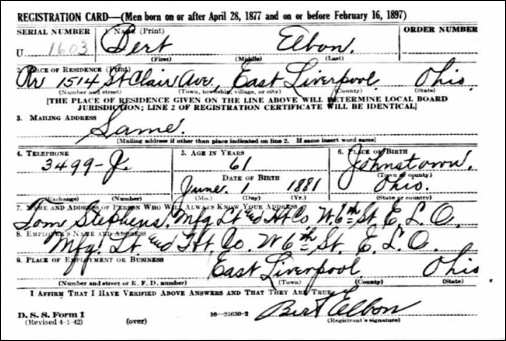 REGISTRATION CARD—(Men born on or after April 28, 1877 and on or before February 16, 1897)
SERIAL NUMBER 1. NAME (Print) ORDER NUMBER
U 1603 Bert Elbon
(First) (Middle) (Last)
2. PLACE OF RESIDENCE (Print)
1514 St Clair Ave. East Liverpool Ohio.
(Number and street) (Town, township, village, or city) (County) (State)
[THE PLACE OF RESIDENCE GIVEN ON THE LINE ABOVE WILL DETERMINE LOCAL BOARD
JURISDICTION; LINE 2 OF REGISTRATION CERTIFICATE WILL BE IDENTICAL]
3. MAILING ADDRESS
Same.
[Mailing address if other than place indicated on line 2. If same insert word same]
4. TELEPHONE 5. AGE IN YEARS 6. PLACE OF BIRTH
3499-J. 61 Johnstown.
DATE OF BIRTH (Town or county)
June. 1 1881 Ohio.
(Exchange) (Number) (Mo.) (Day) (Yr.) (State or country)
7. NAME AND ADDRESS OF PERSON WHO WILL ALWAYS KNOW YOUR ADDRESS
Tom Stephens. Mfg. Lt & Ht Co W 6th St E. L. O.
8. EMPLOYER'S NAME AND ADDRESS
Mfg. Lt & Ht Co. W 6th St. E. L. O.
9. PLACE OF EMPLOYMENT OR BUSINESS
East Liverpool Ohio
(Number and street or R. F. D. number) (Town) (County) (State)
I AFFIRM THAT I HAVE VERIFIED ABOVE ANSWERS AND THAT THEY ARE TRUE.
Bert Elbon
D. S. S. Form 1
(Revised 4-1-42) (over) 16-21630-2 (Registrant's signature)